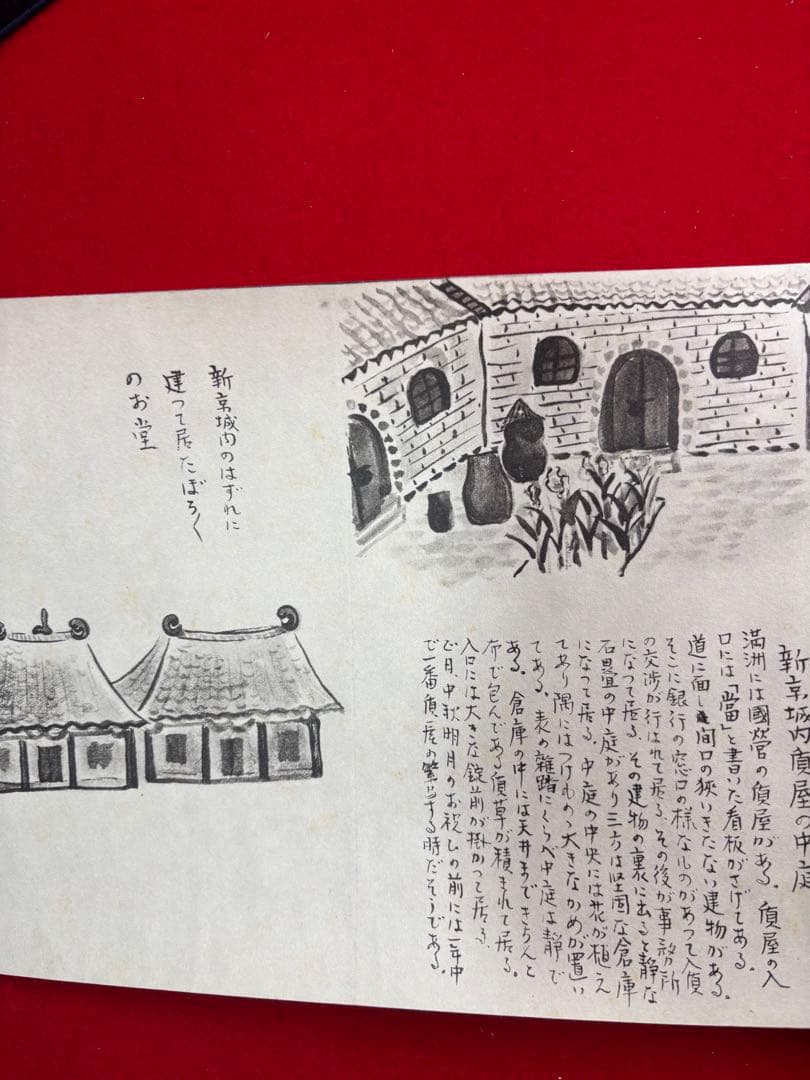 新京城内質屋の中庭
満洲には國営の質屋がある。質屋の入
口には「當」と書いた看板がさげてある。
道に面し間口の狭いきたない建物がある。
そこに銀行の窓口の様なものがあつて入質
の交渉が行はれて居る。その後が事務所
になつて居る。その建物の裏に出ると静な
石畳の中庭があり三方は堅固な倉庫
になつて居る。中庭の中央には花が植え
てあり隅にはつけものゝ大きなかめが置い
てある。表の雑踏にくらべ中庭は静で
ある。倉庫の中には天井まできちんと
布で包んである質草が積まれて居る。
入口には大きな錠前が掛かつて居る。
正月、中秋明月のお祝ひの前には一年中
で一番質屋の繁昌する時だそうである。
新京城内のはずれに
建つて居たぼろ〱
のお堂